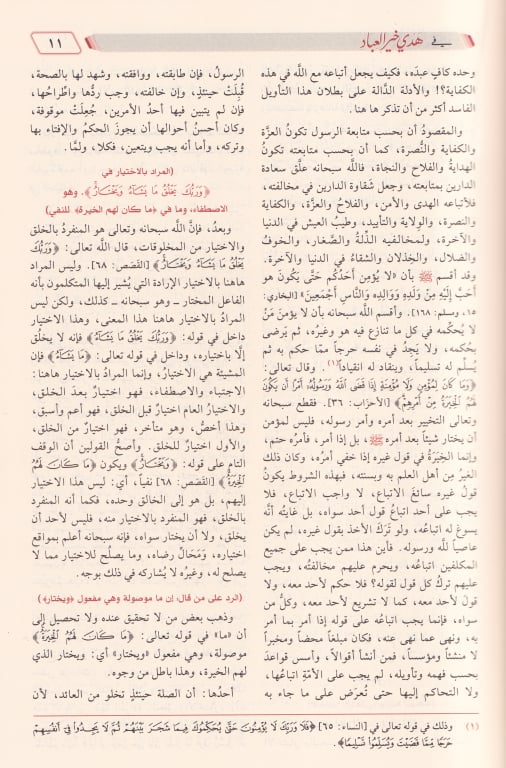 في هدي خير العباد
١١
وحده كافٍ عبدَه، فكيف يجعل أتباعه مع اللَّه في هذه
الكفاية؟! والأدلة الدالة على بطلان هذا التأويل
الفاسد أكثر من أن تذكر ها هنا.
والمقصودُ أن بحسب متابعة الرسول تكونُ العزَّة
والكفاية والنُّصرة، كما أن بحسب متابعته تكونُ
الهدايةُ والفلاح والنجاة، فاللَّه سبحانه علَّق سعادة
الدارين بمتابعته، وجعل شقاوة الدارين في مخالفته،
فلأتباعه الهدى والأمن، والفلاحُ والعزَّة، والكفاية
والنصرة، والولاية والتأييد، وطيبُ العيش في الدنيا
والآخرة، ولمخالفيه الذِّلةُ والصَّغار، والخوفُ
والضلال، والخِذلان والشقاءُ في الدنيا والآخرة.
وقد أقسم ﷺ بأن «لا يُؤمِن أَحدُكُم حَتَّى يَكُونَ هو
أَحبَّ إِلَيْهِ مِنْ وَلَدِهِ وَوَالِدِهِ والنَّاسِ أَجْمَعِينَ» [البخاري:
١٥، ومسلم: ١٦٨]. وأقسم اللَّه سبحانه بأن لا يؤمنَ مَنْ
لا يُحكِّمه في كل ما تنازع فيه هو وغيرُه، ثم يَرضى
بحُكمه، ولا يَجِدُ في نفسه حرجاً ممَّا حكم به ثم
يُسلِّم له تسليماً، وينقاد له انقياداً(١). وقال تعالى:
﴿وَمَا كَانَ لِمُؤْمِنٍ وَلَا مُؤْمِنَةٍ إِذَا قَضَى اللَّهُ وَرَسُولُهُ أَمْرًا أَن يَكُونَ
لَهُمُ الْخِيَرَةُ مِنْ أَمْرِهِمْ﴾ [الأحزاب: ٣٦]. فقطع سبحانه
وتعالى التخيير بعد أمره وأمر رسوله، فليس لمؤمن
أن يختار شيئاً بعد أمره ﷺ، بل إذا أمر، فأمرُه حتم،
وإنما الخِيَرَةُ في قول غيره إذا خفي أمرُه، وكان ذلك
الغيرُ مِن أهل العلم به وبسنته، فبهذه الشروط يكونُ
قولُ غيره سائغَ الاتباع، لا واجب الاتباع، فلا
يجب على أحد اتباعُ قول أحد سواه، بل غايتُه أنَّه
يسوغ له اتباعُه، ولو تَرَكَ الأخذ بقول غيره، لم يكن
عاصياً للَّه ورسوله. فأين هذا ممن يجب على جميع
المكلفين اتباعُه، ويحرم عليهم مخالفتُه، ويجب
عليهم تركُ كل قول لقوله؟ فلا حكم لأحد معه، ولا
قولَ لأحد معه، كما لا تشريع لأحد معه، وكلُّ من
سواه، فإنما يجب اتباعُه على قوله إذا أمر بما أمر
به، ونهى عما نهى عنه، فكان مبلغاً محضاً ومخبراً
لا منشئاً ومؤسساً، فمن أنشأ أقوالاً، وأسس قواعدَ
بحسب فهمه وتأويله، لم يجب على الأمَّةِ اتباعُها،
ولا التحاكم إليها حتى تُعرَض على ما جاء به
الرسولُ، فإن طابقته، ووافقته، وشهد لها بالصحة،
قُبِلَتْ حينئذٍ، وإن خالفته، وجب ردُّها واطِّراحُها،
فإن لم يتبين فيها أحدُ الأمرين، جُعِلَتْ موقوفة،
وكان أحسنُ أحوالها أن يجوزَ الحكمُ والإفتاء بها
وتركه، وأما أنه يجب ويتعين، فكلا، ولمَّا.
(المراد بالاختيار في
﴿وَرَبُّكَ يَخْلُقُ مَا يَشَآءُ وَيَخْتَارُ﴾. وهو
الاصطفاء، وما في ﴿ما كان لهم الخيرة﴾ للنفي)
وبعدُ، فإنَّ اللَّه سبحانه وتعالى هو المنفردُ بالخلق
والاختيار من المخلوقات، قال اللَّه تعالى: ﴿وَرَبُّكَ
يَخْلُقُ مَا يَشَآءُ وَيَخْتَارُ﴾ [القَصَص: ٦٨]. وليس المراد
هاهنا بالاختيار الإرادة التي يُشير إليها المتكلمون بأنه
الفاعل المختار ـ وهو سبحانه ـ كذلك، ولكن ليس
المرادُ بالاختيار هاهنا هذا المعنى، وهذا الاختيار
داخل في قوله: ﴿يَخْلُقُ مَا يَشَآءُ﴾ فإنه لا يخلُق
إلَّا باختياره، وداخل في قوله تعالى: ﴿مَا يَشَآءُ﴾ فإن
المشيئة هي الاختيارُ، وإنما المرادُ بالاختيار هاهنا:
الاجتباء والاصطفاء، فهو اختيارٌ بعدَ الخلق،
والاختيارُ العام اختيارٌ قبل الخلق، فهو أعم وأسبق،
وهذا أخصُّ، وهو متأخر، فهو اختيارٌ من الخلق،
والأول اختيارٌ للخلق. وأصحُّ القولين أن الوقف
التام على قوله: ﴿وَيَخْتَارُ﴾ ويكون ﴿مَا كَانَ لَهُمُ
الْخِيَرَةُ﴾ [القَصَص: ٦٨] نفياً، أي: ليس هذا الاختيار
إليهم، بل هو إلى الخالق وحده، فكما أنه المنفرد
بالخلق، فهو المنفرد بالاختيار منه، فليس لأحد أن
يخلق، ولا أن يختار سواه، فإنه سبحانه أعلم بمواقع
اختياره، وَمَحَالِّ رضاه، وما يصلُح للاختيار مما لا
يصلح له، وغيرُه لا يُشاركه في ذلك بوجه.
(الرد على من قال: إن ما موصولة وهي مفعول ﴿ويختار﴾)
وذهب بعض من لا تحقيق عنده ولا تحصيل إلى
أن «ما» في قوله تعالى: ﴿مَا كَانَ لَهُمُ الْخِيَرَةُ﴾
موصولة، وهي مفعول «ويختار» أي: ويختار الذي
لهم الخيرة، وهذا باطل من وجوه.
أحدُها: أن الصلة حينئذٍ تخلو من العائد، لأن
(١) وذلك في قوله تعالى في [النساء: ٦٥] ﴿فَلَا وَرَبِّكَ لَا يُؤْمِنُونَ حَتَّى يُحَكِّمُوكَ فِيمَا شَجَرَ بَيْنَهُمْ ثُمَّ لَا يَجِدُوا فِي أَنفُسِهِمْ
حَرَجًا مِّمَّا قَضَيْتَ وَيُسَلِّمُوا تَسْلِيمًا﴾.